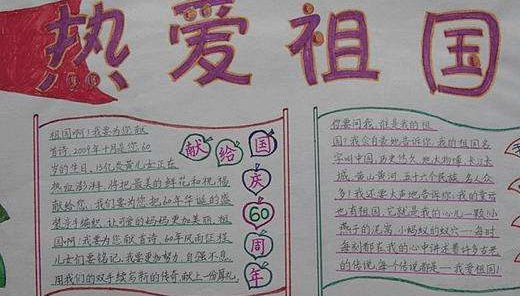 热爱祖国
祖国啊!我要为您献
首诗.2009年十月是您60
岁的生日,13亿炎黄儿女正在
热血澎湃,将把最美的鲜花和祝福
献给您.我们要为您60年华诞的盛
让可爱的妈妈更加美丽.祖
国啊!我要为您献首诗.60年风雨征程
儿女们要铭记,我要更加努力,自强不息
用我们的双手续写新的传奇,献上一份厚礼.
献给国
庆
60
周
年
你要问我,谁是我的祖
国?我会自豪地告诉你,我的祖国名
字叫中国.历史悠久,地大物博,长江长
城,黄山黄河,五十六个民族,名人众
多!我还要大声地告诉你:我的
也有祖国,它就是我的心儿一颗:小
燕子的泥窝,小蚂蚁的蚁穴……每时
每刻都在我的心中讲述着许多古老
的传说,每个传说都是一我爱祖国!